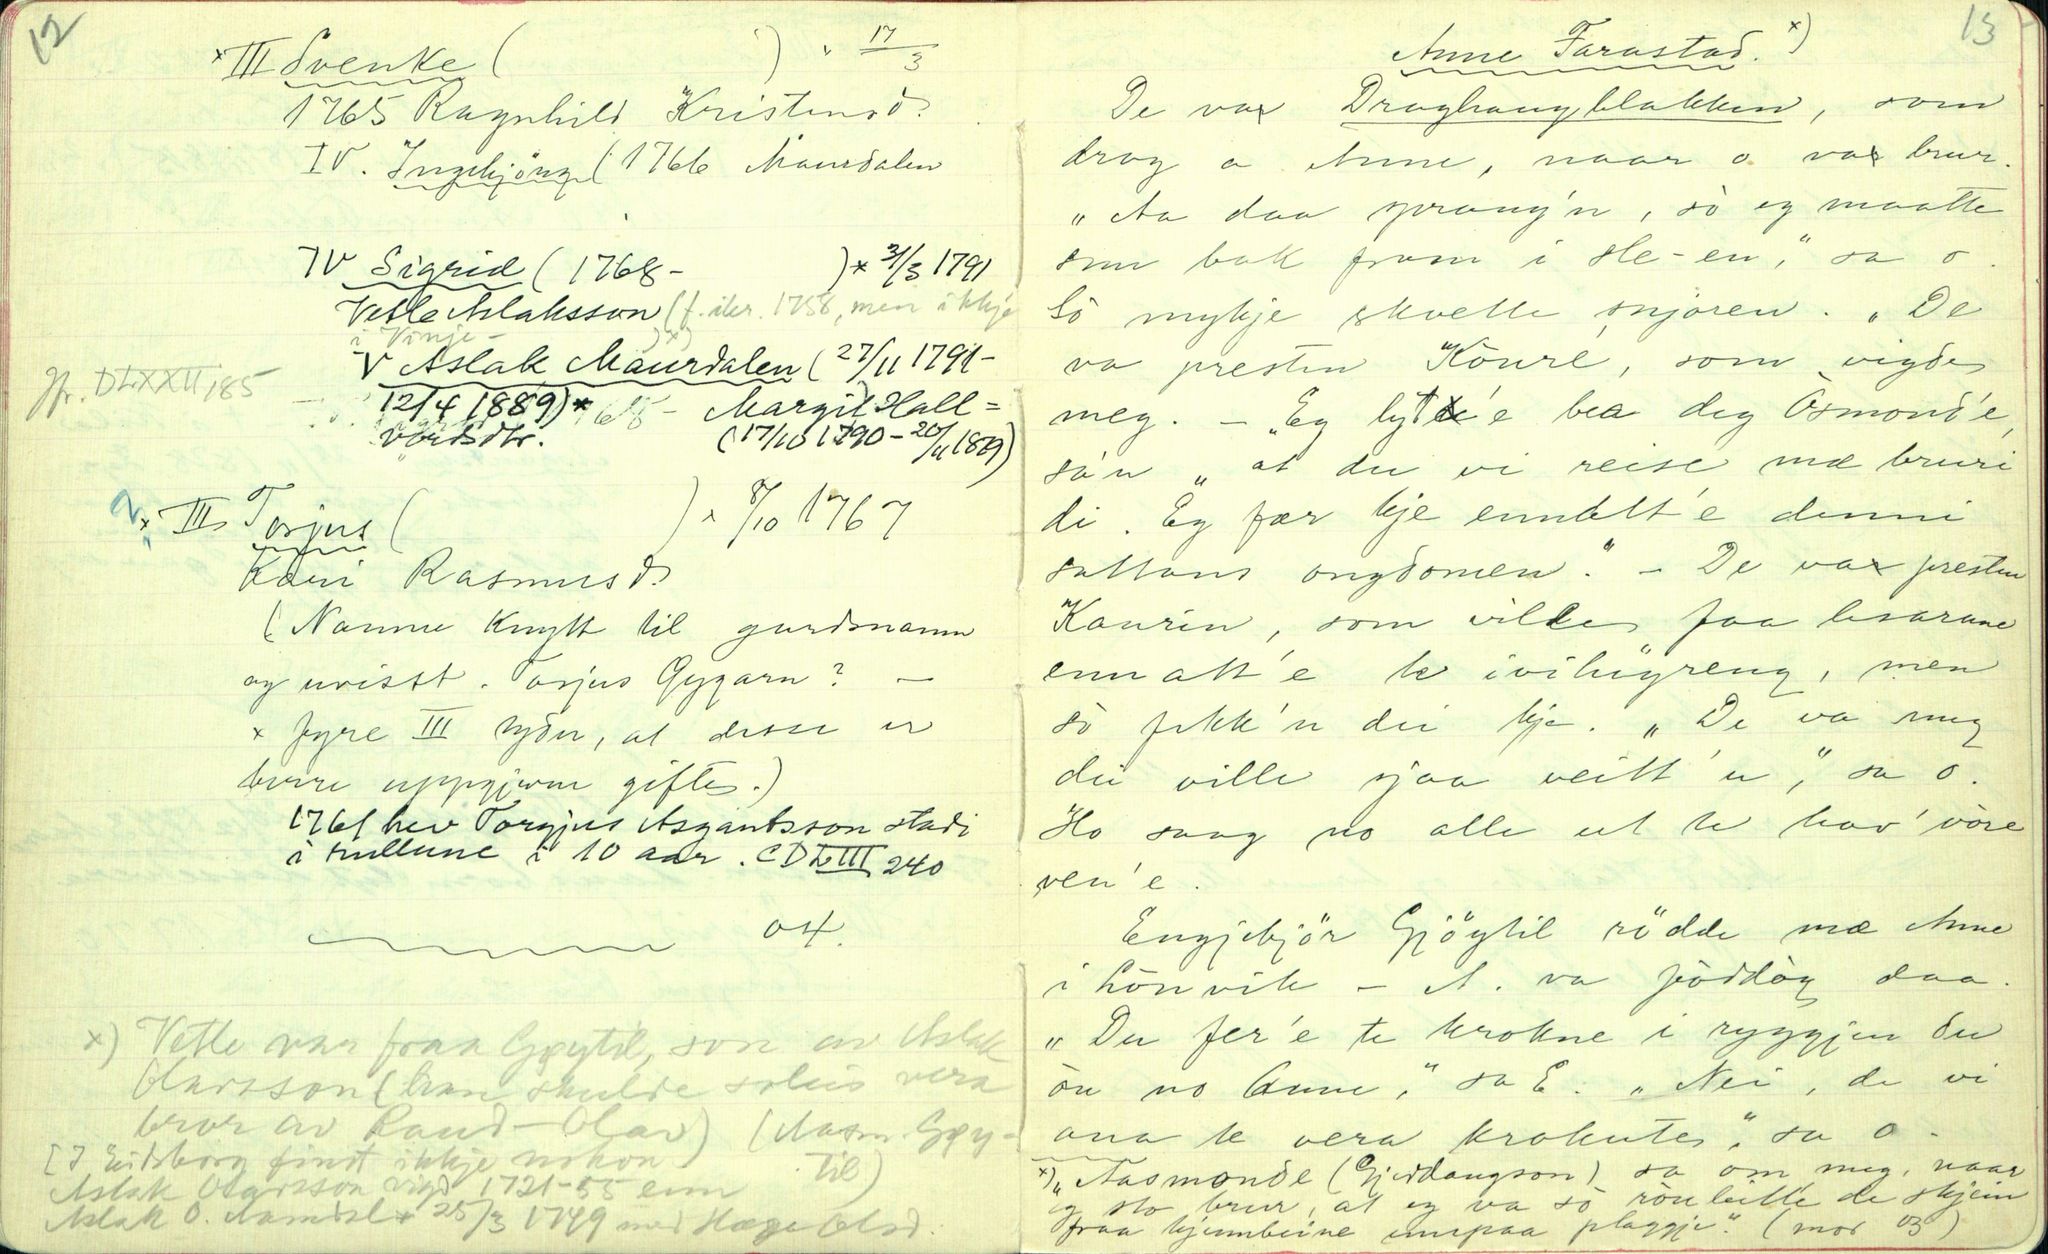 12
x III Svenke ( ) " 17/3
1765 Ragnhild Kristensd.
IV. Ingebjörg ( 1766 Maurdalen
IV Sigrid ( 1768- ) x 31/3 1791
Vetle Aslaksson (f. ikr. 1758, men ikkje
i Vinje - ) x)
V Aslak Maurdalen ( 27/11 1791-
Jfr. DLXXII, 85
12/4 1889) x Margit Hall=
vordsdtr. (17/10 1790 - 20/11 1869)
2 x III Torjus ( ) x 8/10 1767
Kari Rasmusd.
( Namne knytt til gardsnamn
og uvisst. Torjus Gygarn? -
x fyre III syder, at desse er
berre uppgjevne gifte.)
1761 hev Torgjus Asgautsson stadi
i rullune i 10 aar. CDLIII 240
04.
x) Vetle var fraa Gøytil, son av Aslak
Olavsson (han skulde soleis vera
bror av Raud-Olav) (Aasm. Gøy-
til)
[I Eidsborg finst ikkje nokon
Aslak Olavsson vigd 1721-55 enn
Aslak O. Aamdal x 25/3 1749 med Hæge Olsd.
13
Anne Tarastad. x)
De va Draghaugblakken, som
drog a Anne, naar o va brur.
"Aa daa sprang'n, so eg maatte
snu bak fram i sle-en," sa o.
So mykje skvette snjoren. "De
va presten Kòuré, som vigde
meg. - "Eg lyt 'e bea deg Òsmond'e,
sa'n "at du vi reise mæ bruri
di. Eg fær kje enndt'e denni
sattans ongdomen." - De va presten
Kaurin, som ville faa lesarane
enn att'e te ivihøgreng, men
so fekk'n dei kje. "De va meg
dei ville sjaa veitt'u," sa o.
Ho saag no alle ut te hav' vòre
ven'e.
Engjebjör Gjöytil rödde mæ Anne
i Lönvik - A. va föddòg daa.
"Du fer'e te krokne i ryggjen du
òu no Anne," sa E. "Nei, de vi
ana te vera krokute," sa o.
x) "Aasmonde (Gjerdaugson) sa om meg, naar
eg sto brur, at eg va so ròuleitte de skjein
fraa kjinnbeine innpaa plaggje." (mor 03)